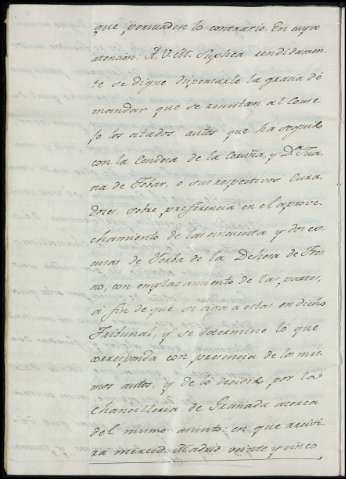 que persuaden lo contrario. En cuya
atencion A.V.M. Suplica rendidamen-
te se digne dispensarle la gracia de
mandar que se remitan al Conse-
jo los citados autos que ha seguido
con la Condesa de la Coruña, y D.ª Jua-
na de Tobar, o sus respectivos Cura-
dores sobre preferencia en el aprove-
chamiento de las
de la Dehesa de Fres-
no, con emplazamiento de las partes,
a fin de que se oiga a estas en dicho
Tribunal, y se determine lo que
corresponda con presencia de los mis-
mos autos, y de lo decidido por la
Chancilleria de Granada acerca
del mismo asunto: en que recivi-
ra merced. Madrid veinte y cinco